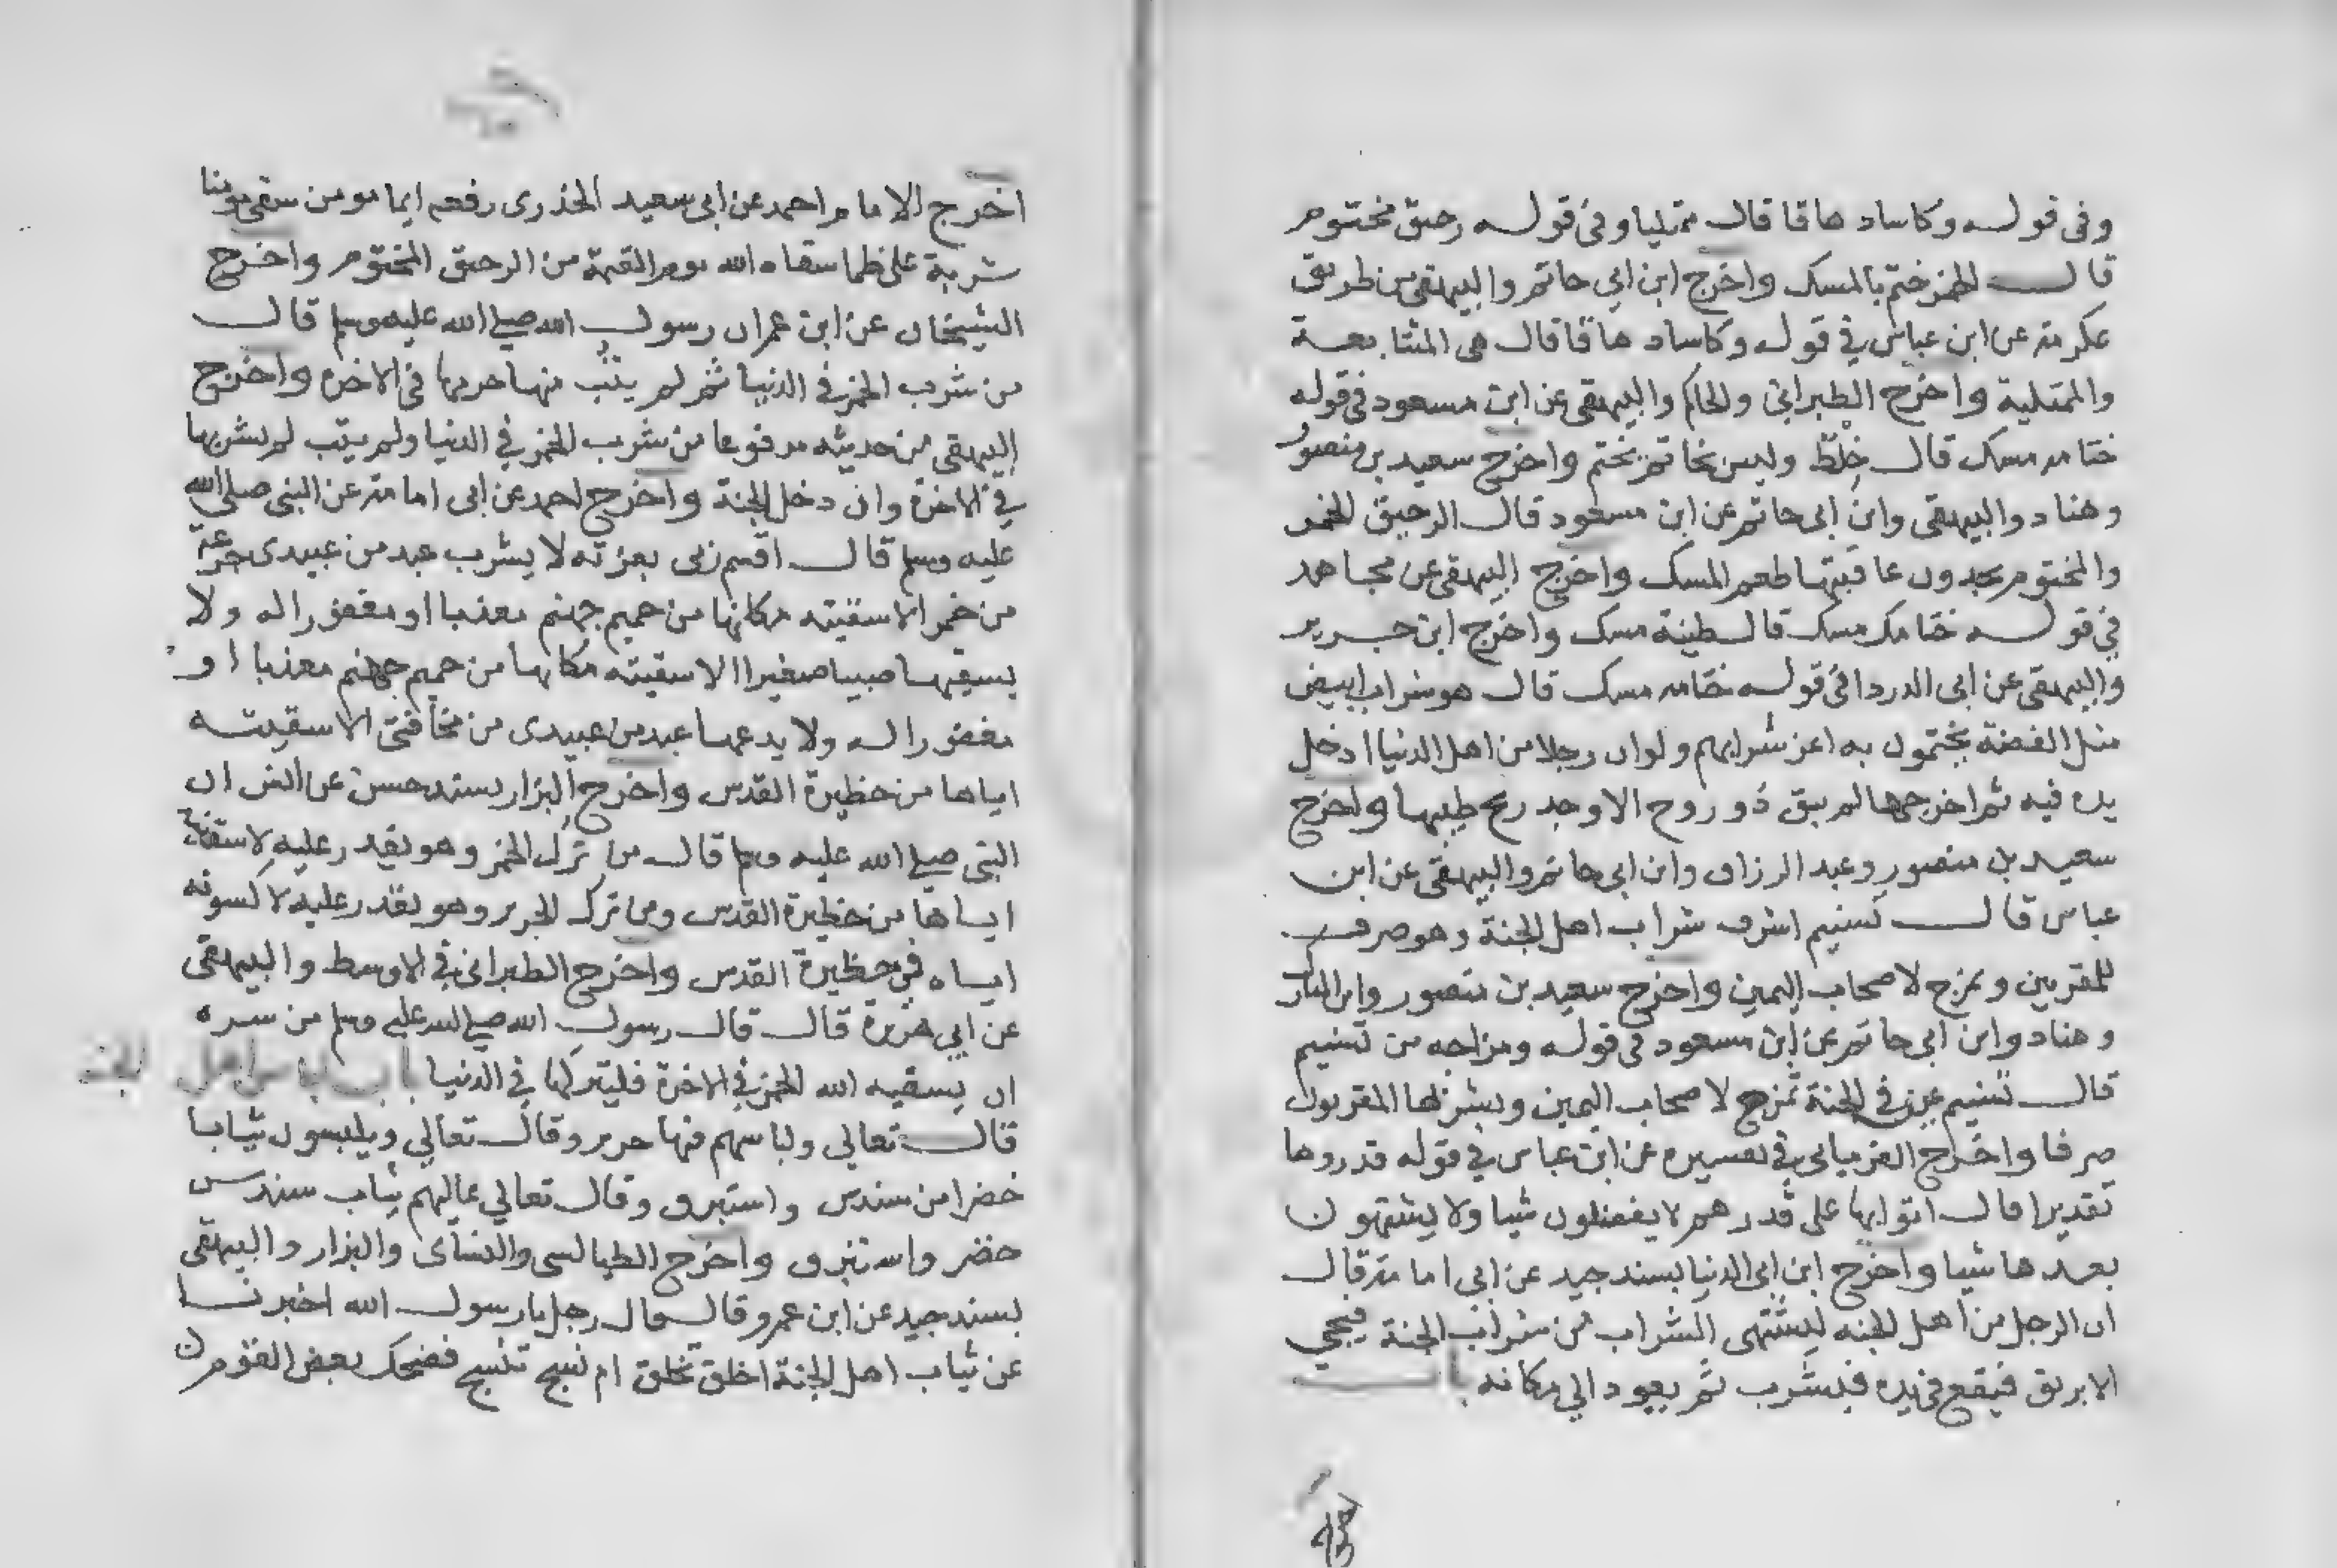 وفى قوله وكاسا دهاقا قال ممتليا وفى قوله رحيق مختوم
قال الخمر ختم بالمسك واخرج ابن ابي حاتم والبيهقى من طريق
عكرمة عن ابن عباس في قوله وكاسا دهاقا قال هى المتتابعة
والممتلية واخرج الطبرانى والحاكم والبيهقى عن ابن مسعود فى قوله
ختامه مسك قال خلط وليس بخاتم يختم واخرج سعيد بن منصور
وهناد والبيهقى وابن ابى حاتم عن ابن مسعود قال الرحيق الخمر
والمختوم يجدون عاقبتها طعم المسك واخرج البيهقى عن مجاهد
في قوله ختامه مسك قال طينة مسك واخرج ابن جرير
والبيهقى عن ابى الدردا فى قوله ختامه مسك قال هو شراب ابيض
مثل الفضة يختمون به اخر شرابهم ولو ان رجلا من اهل الدنيا ادخل
يده فيه ثم اخرجها لم يبق ذو روح الا وجد ريح طيبها واخرج
سعيد بن منصور وعبد الرزاق وابن ابى حاتم والبيهقى عن ابن
عباس قال تسنيم اشرف شراب اهل الجنة وهو صرف
للمقربين ويمزج لاصحاب اليمين واخرج سعيد بن منصور وابن المبارك
وهناد وابن ابى حاتم عن ابن مسعود فى قوله ومزاجه من تسنيم
قال تسنيم عين في الجنة تمزج لاصحاب اليمين ويشربها المقربون
صرفا واخرج الفريابى في تفسيره عن ابن عباس في قوله قدروها
تقديرا قال اتوا بها على قدرهم لا يفضلون شيا ولا يشتهون
بعدها شيا واخرج ابن ابى الدنيا بسند جيد عن ابى امامة قال
ان الرجل من اهل الجنه ليشتهى الشراب من شراب الجنة فيجي
الابريق فيقع فى يده فيشرب ثم يعود الي مكانه باب
اخرج الامام احمد عن ابى سعيد الخدرى رفعه ايما مومن سقى مومنا
شربة على ظما سقاه الله يوم القيمة من الرحيق المختوم واخرج
الشيخان عن ابن عمر ان رسول الله صلى الله عليه وسلم قال
من شرب الخمر في الدنيا ثم لم يتب منها حرمها فى الاخره واخرج
البيهقى من حديثه مرفوعا من شرب الخمر في الدنيا ولم يتب لم يشربها
في الاخرة وان دخل الجنة واخرج احمد عن ابى امامة عن النبى صلى الله
عليه وسلم قال اقسم ربى بعزته لا يشرب عبد من عبيدى جرعة
من خمر الا سقيته مكانها من حميم جهنم معذبا او مغفورا له ولا
يسقيها صبيا صغيرا الا سقيته مكانها من حميم جهنم معذبا او
مغفورا له ولا يدعها عبد من عبيدى من مخافتى الا سقيته
اياها من حظيرة القدس واخرج البزار بسند حسن عن انس ان
النبى صلى الله عليه وسلم قال من ترك الخمر وهو يقدر عليه لاسقينه
اياها من حظيرة القدس ومن ترك الحرير وهو يقدر عليه لاكسونه
اياه في حظيرة القدس واخرج الطبرانى في الاوسط والبيهقى
عن ابي هريرة قال قال رسول الله صلى الله عليه وسلم من سره
ان يسقيه الله الخمر في الاخرة فليتركها في الدنيا باب لباس اهل الجنة
قال تعالى ولباسهم فيها حرير وقال تعالي ويلبسون ثيابا
خضرا من سندس واستبرق وقال تعالي عاليهم ثياب سندس
خضر واستبرق واخرج الطيالسى والنسآى والبزار والبيهقى
بسند جيد عن ابن عمرو قال قال رجل يا رسول الله اخبرنا
عن ثياب اهل الجنة اخلق تخلق ام نسج تنسج فضحك بعض القوم